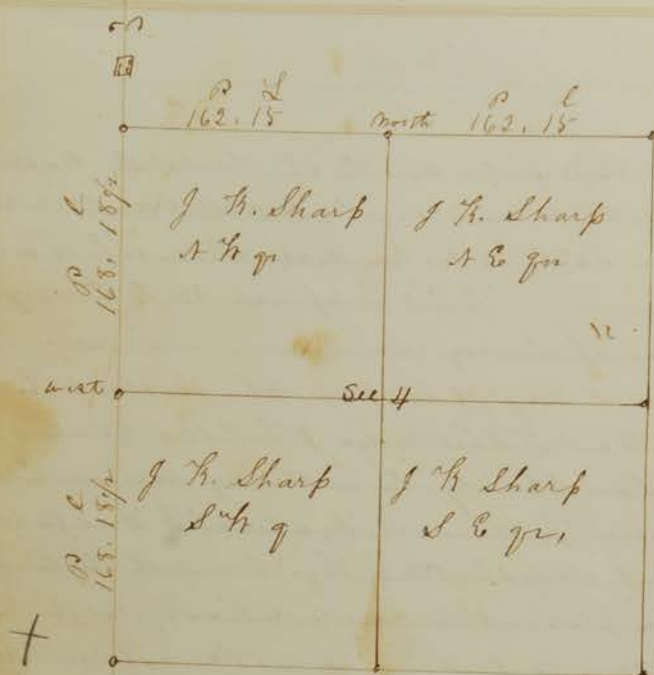 P L P L
162. 15 North 162. 15
P L
168. 18 1/2
J K. Sharp
N W qr
J K. Sharp
N E qr
west
Sec 4
P L
168. 18 1/2
J K. Sharp
S W q
J K Sharp
S E qr.